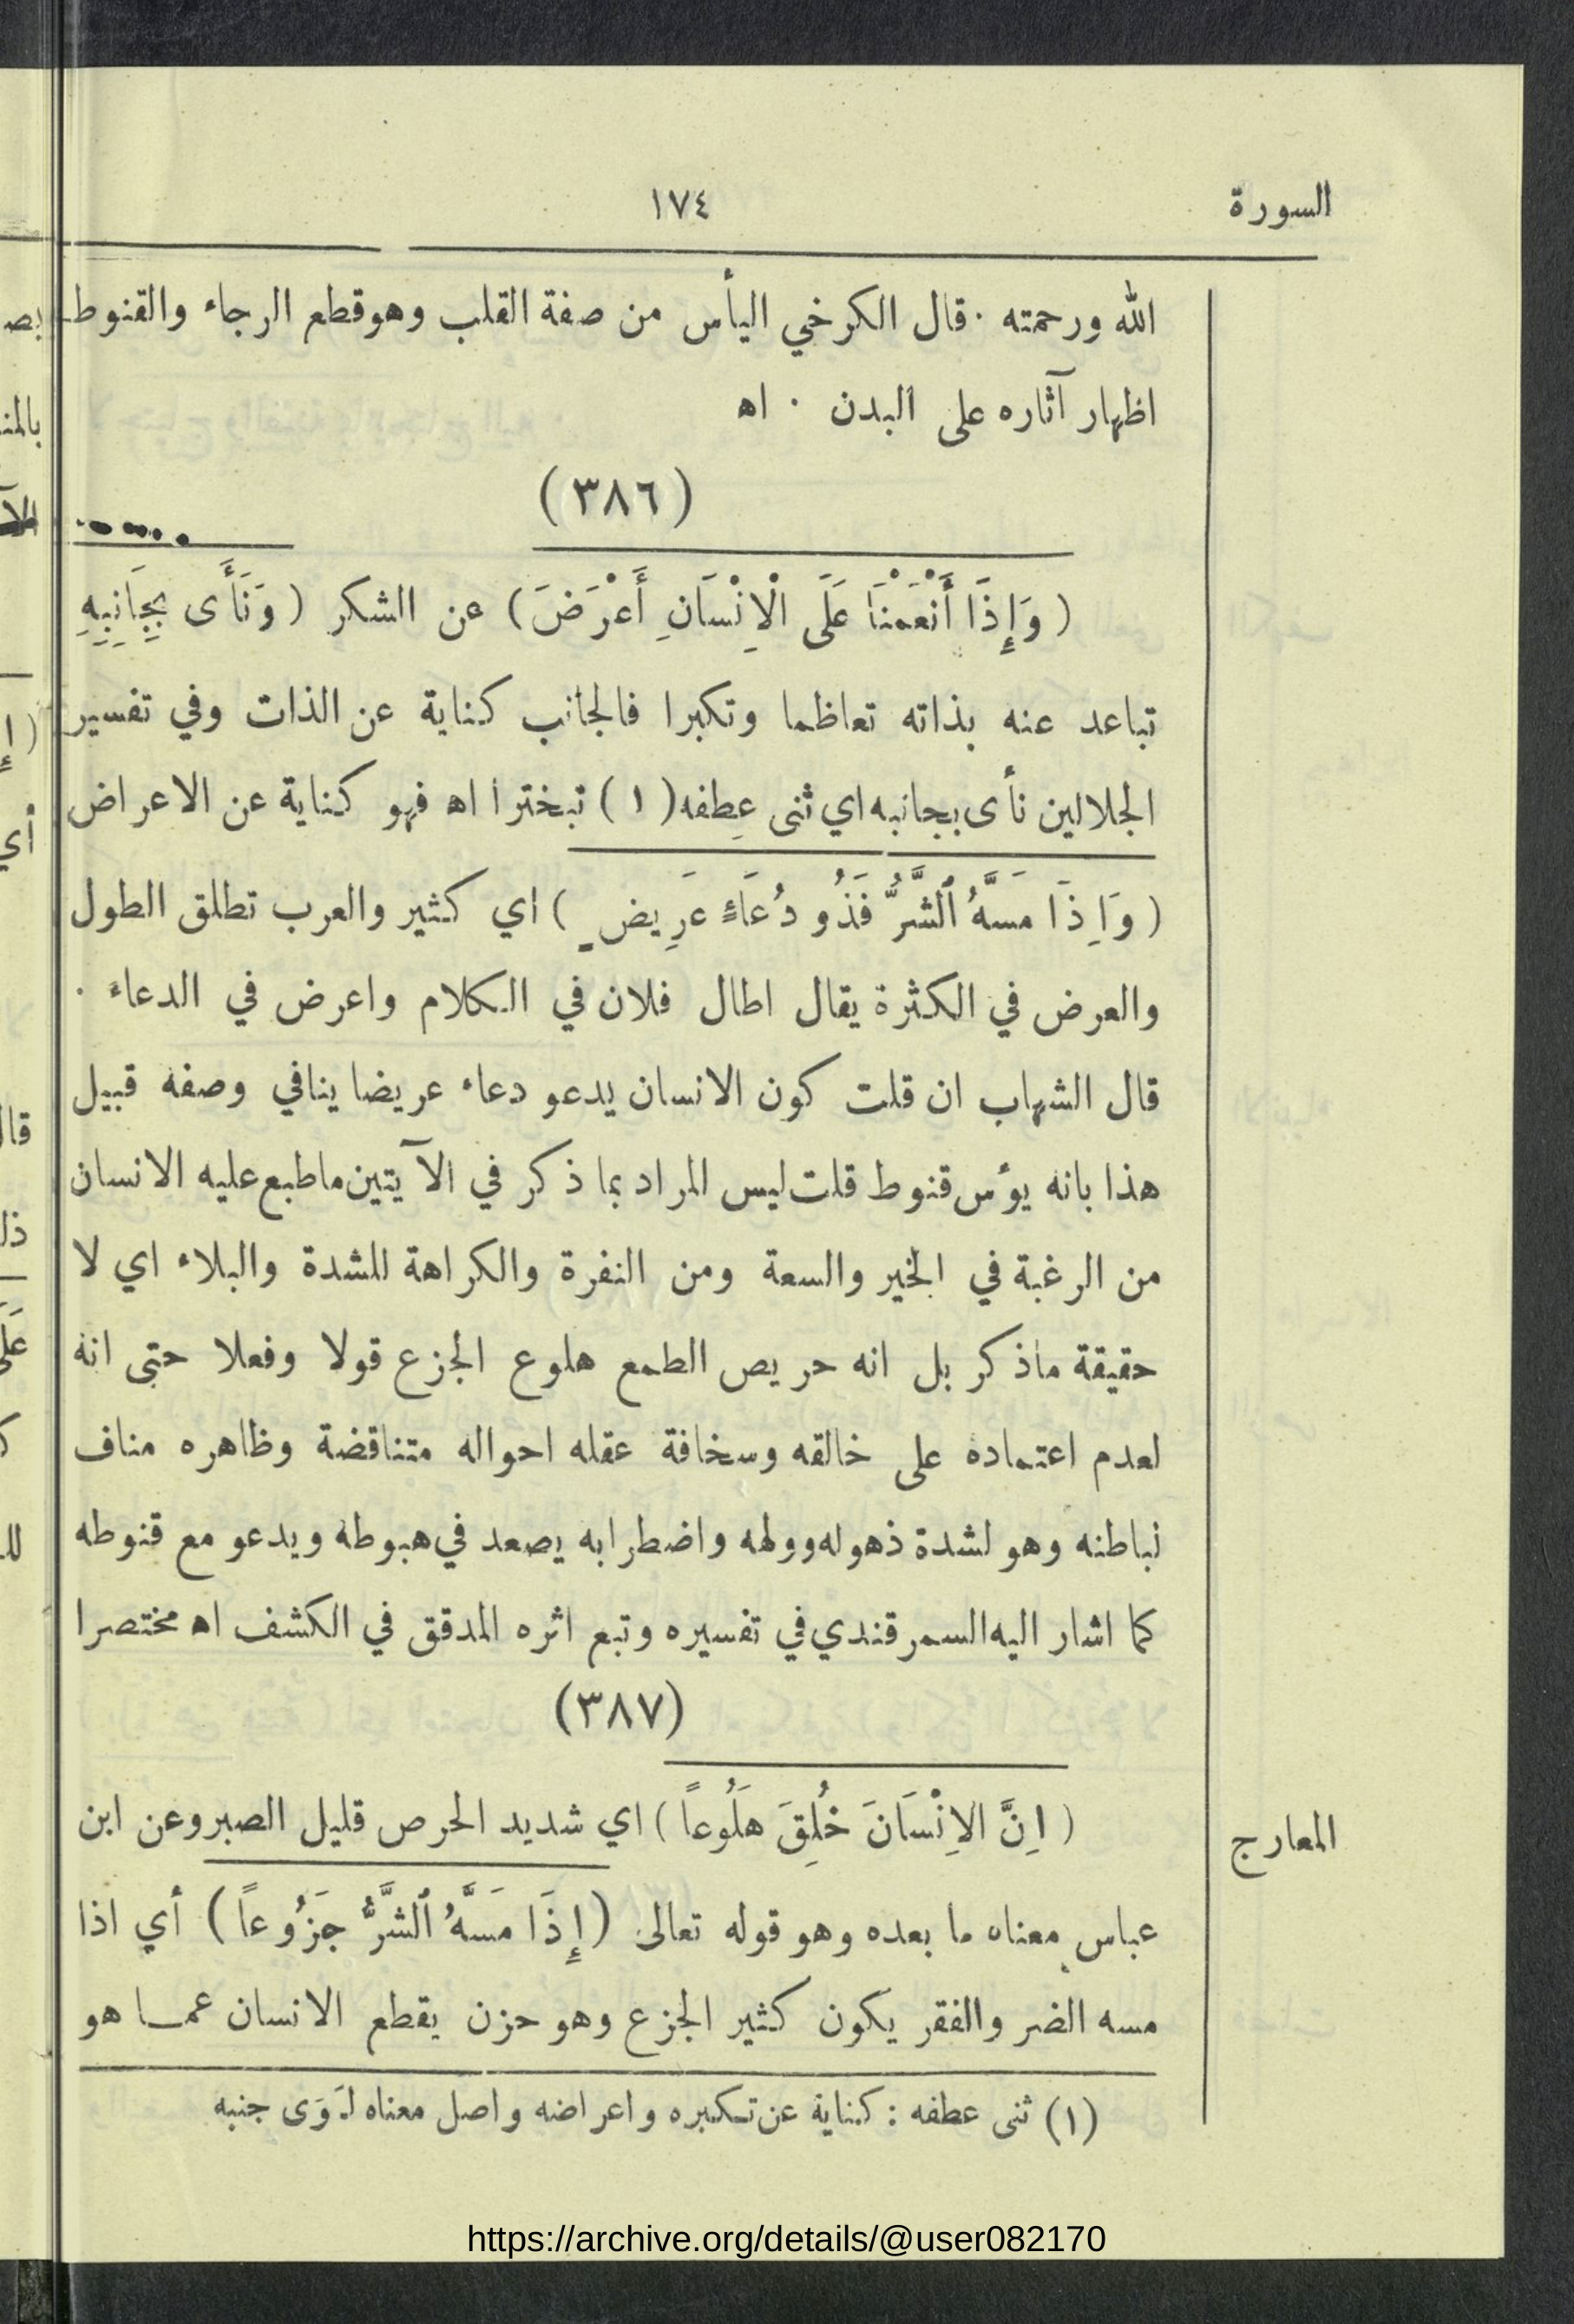 السورة ١٧٤
الله ورحمته ٠ قال الكرخي اليأس من صفة القلب وهو قطع الرجاء والقنوط
اظهار آثاره على البدن ٠ اه
(٣٨٦)
( وَإِذَا أَنْعَمْنَا عَلَى الْاِنْسَانِ أَعْرَضَ ) عن الشكر ( وَنَأَى بِجَانِبِهِ
تباعد عنه بذاته تعاظما وتكبرا فالجانب كناية عن الذات وفي تفسير
الجلالين نأى بجانبه اي ثنى عِطفه ( ١ ) تبخترا اه فهو كناية عن الاعراض
( وَاِذَا مَسَّهُ ٱلشَّرُّ فَذُو دُعَاءٍ عَرِيضٍ ) اي كثير والعرب تطلق الطول
والعرض في الكثرة يقال اطال فلان في الكلام واعرض في الدعاء ٠
قال الشهاب ان قلت كون الانسان يدعو دعاء عريضا ينافي وصفه قبيل
هذا بانه يؤس قنوط قلت ليس المراد بما ذكر في الآيتين ما طبع عليه الانسان
من الرغبة في الخير والسعة ومن النفرة والكراهة للشدة والبلاء اي لا
حقيقة ماذكر بل انه حريص الطمع هلوع الجزع قولا وفعلا حتى انه
لعدم اعتماده على خالقه وسخافة عقله احواله متناقضة وظاهره مناف
لباطنه وهو لشدة ذهوله وولهه واضطرابه يصعد في هبوطه ويدعو مع قنوطه
كما اشار اليه السمرقندي في تفسيره وتبع اثره المدقق في الكشف اه مختصرا
(٣٨٧)
( اِنَّ الاِنْسَانَ خُلِقَ هَلُوعاً ) اي شديد الحرص قليل الصبر وعن ابن
المعارج
عباس معناه ما بعده وهو قوله تعالى ( إِذَا مَسَّهُ ٱلشَّرُّ جَزُوعاً ) أي اذا
مسه الضر والفقر يكون كثير الجزع وهو حزن يقطع الانسان عمـا هو
(١) ثنى عطفه : كناية عن تكبره واعراضه واصل معناه لَوَى جنبه
https://archive.org/details/@user082170